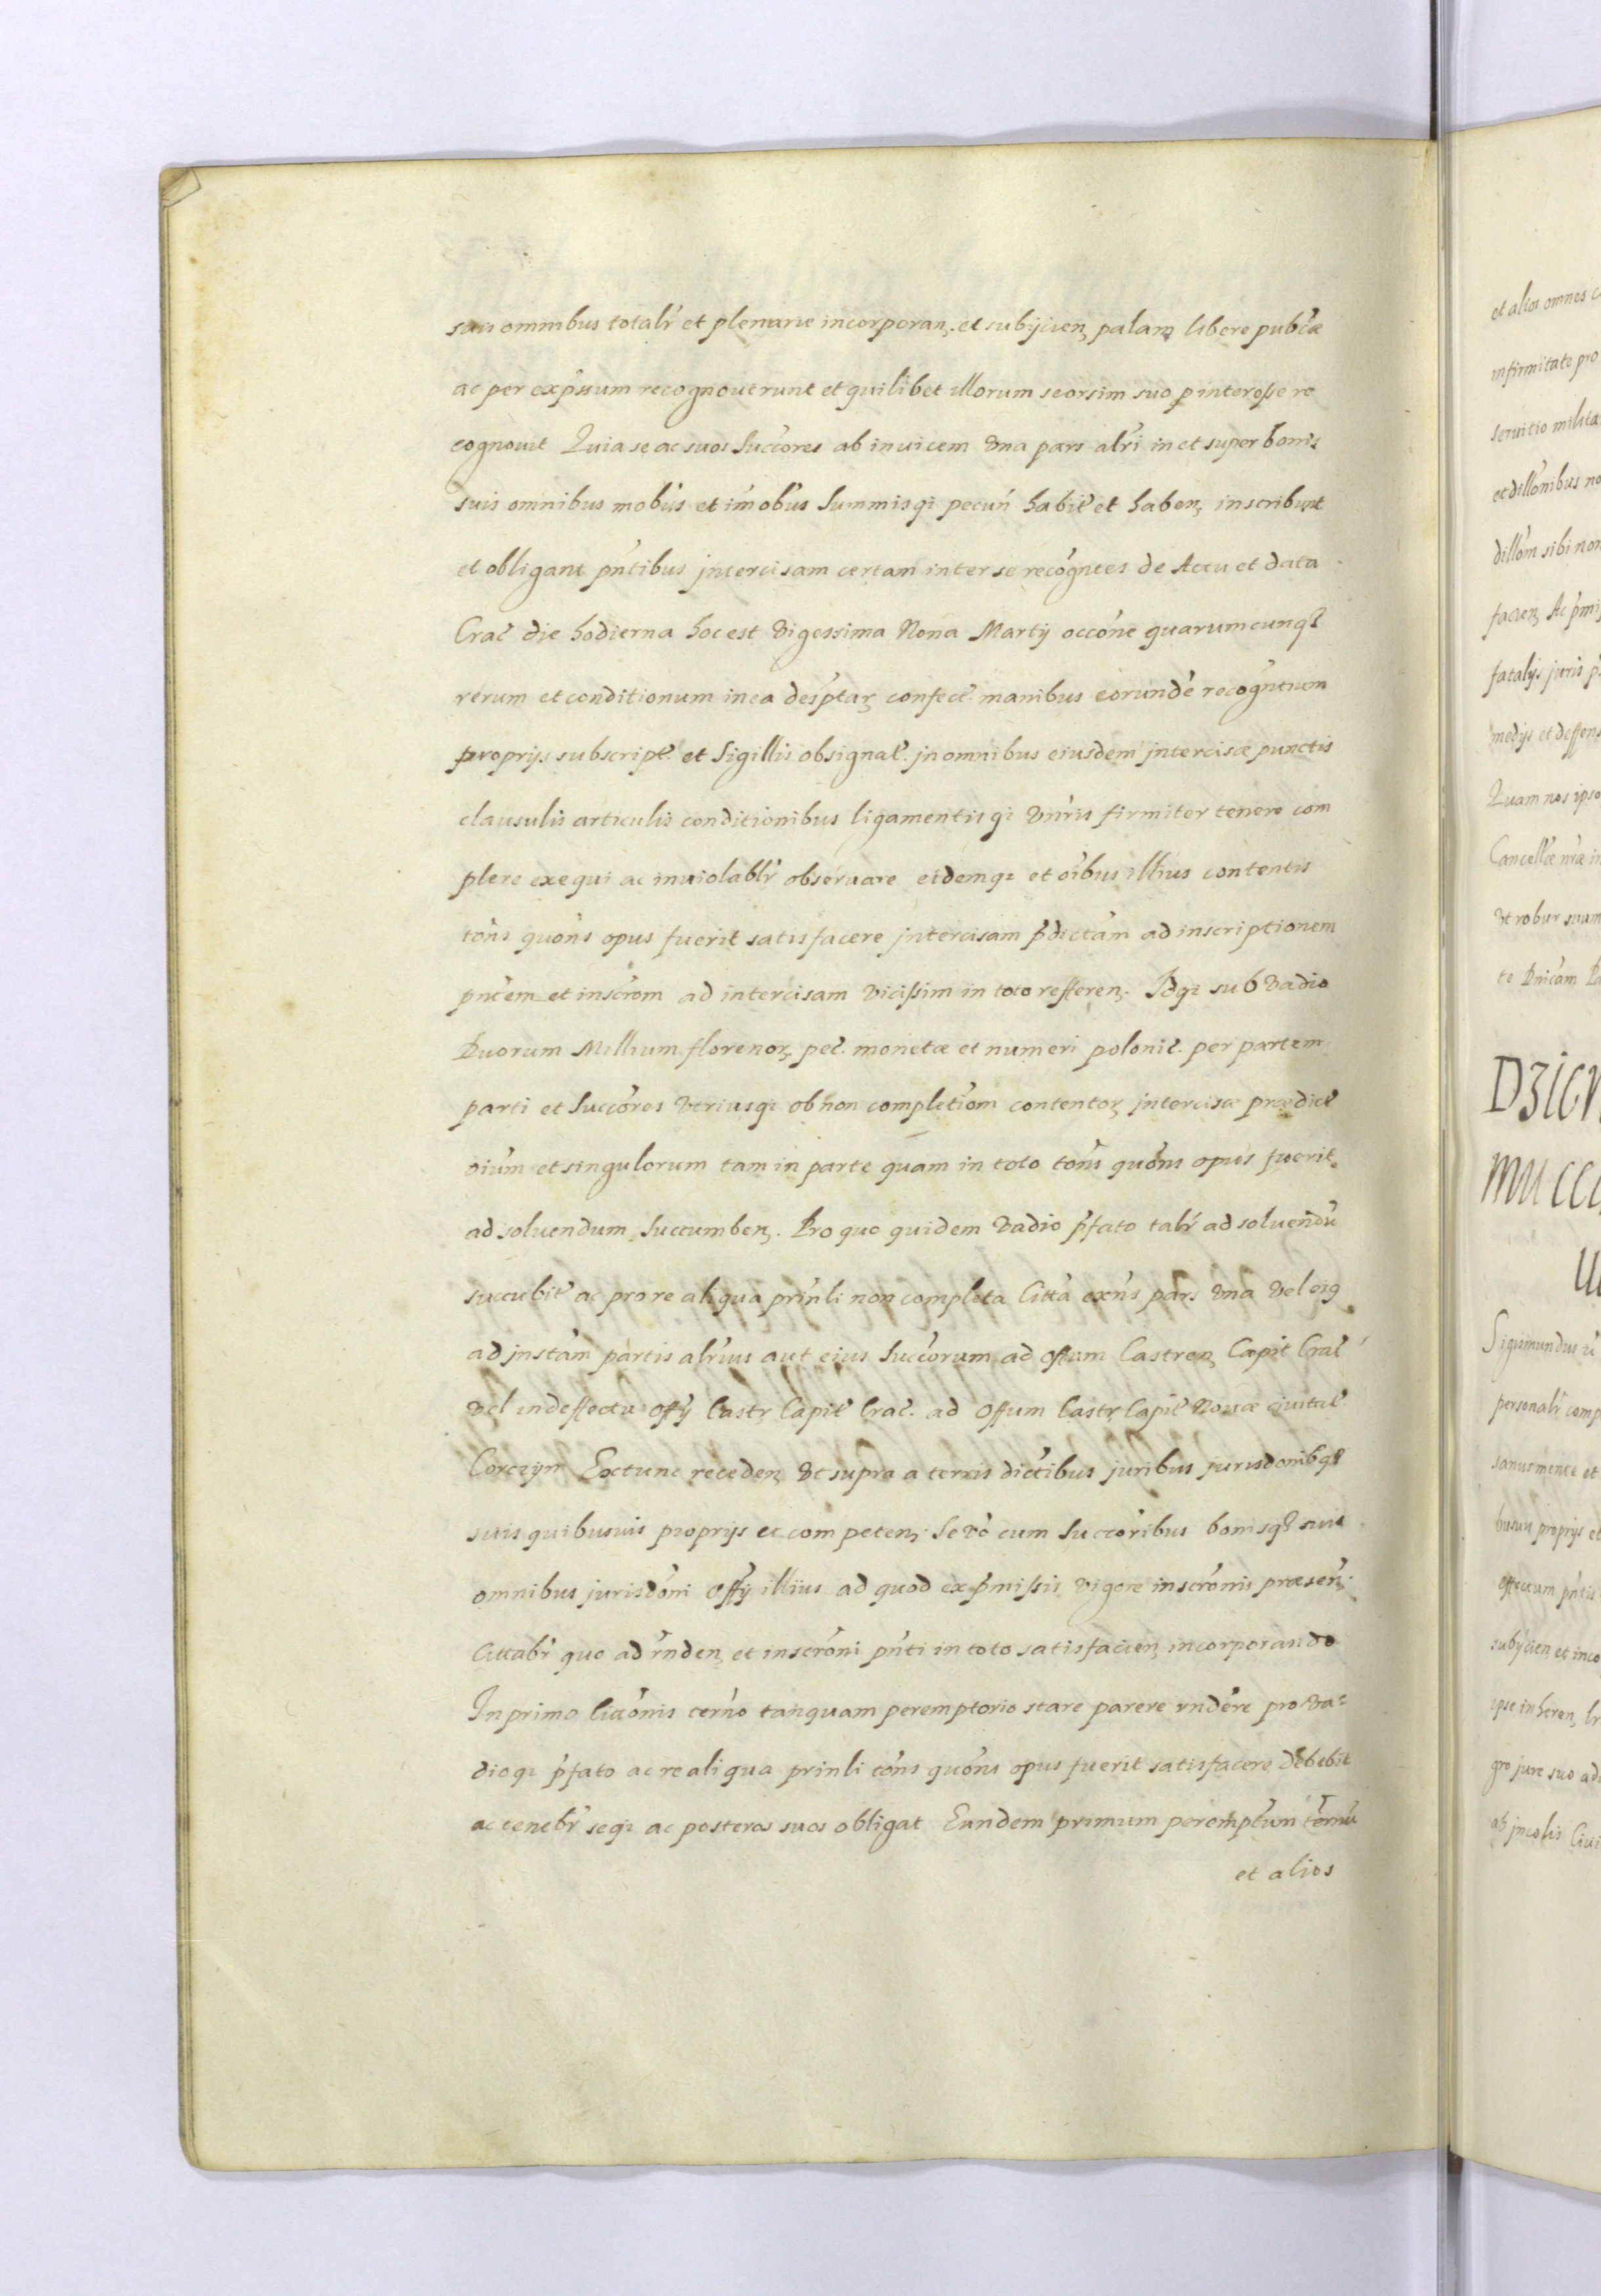 suis omnibus totalr̃ et plenarie incorporan, et subijcien, palam libere publ̃cæ
ac per exp̃ssum recognouerunt et quilibet illorum seorsim suo p interesse re
cognouit Quia se ac suos Succ̃ores ab inuicem vna pars alr̃i in et super bonis
suis omnibus mob̃us et im̃ob̃us Summisq; pecuñ habit̃ et haben, inscribunt
et obligant pñtibus intercisam certam inter se recõgntes de Actu et data
Crac̃ die hodierna hoc est vigessima Nona Martij occõne quarumcunq;
rerum et conditionum in ea desp̃tar, confect̃. manibus eorundẽ recogñtium
proprijs subscript̃. et Sigillis obsignat̃. in omnibus eiusdem intercisæ punctis
clausulis articulis conditionibus ligamentisq; vñris firmiter tenere com
plere exequi ac inuiolablr̃ obseruare eidemq; et oĩbus illius contentis
tõns quõns opus fuerit satisfacere intercisam p̃dictam ad inscriptionem
pñtem et inscrõm ad intercisam vicissim in toto refferen. Idq; sub vadio
Duorum Millium florenor, pec̃. monetæ et numeri polonic̃. per partem
parti et Succ̃ores vtriusq; ob non completiõm contentor, intercisæ prædict̃
oiũm et singulorum tam in parte quam in toto tõns quõns opus fuerit
ad soluendum Succumben,. Pro quo quidem vadio p̃fato talr̃ ad soluendũ
succubit̃ ac pro re aliqua priñli non completa Citt̃a exñs pars vna vel eiɋ
ad instãm partis alr̃ius aut eius Succ̃orum ad offum Castren, Capit Crac̃
vel in deffectu offij Castr, Capit̃ Crac̃. ad Offum Castr, Capit̃ Nouæ Ciuitat̃
Corczyn Extunc receden, vt supra a terris dic̃tibus juribus jurisdõnibq;
suis quibusuis proprijs et competen, Se vẽ cum Succ̃oribus bonisq; suis
omnibus jurisdõni offij illius ad quod ex p̃missis vigore inscrõnis præsen,
Cittabr̃ quo ad rñden, et inscrõni pñti in toto satisfacien, incorporando
In primo Cittõnis terño tanquam peremptorio stare parere rndẽre pro va=
dioq; p̃fato ac re aliqua prinli tõns quõns opus fuerit satisfacere debebit
ac tenebr̃ seq; ac posteros suos obligat Eundem primum peremptum terñu
et alios
et alios omnes c
infirmitate pro
seruitio milita
et dillõnibus no
dillõm sibi non
facien, Ac p̃mis
fatalijs juris p
medijs et deffens
Quam nos ipso
Cancellæ nr̃æ in
vt robur suum
te Dnicam
DZICN
MU CCC
Sigismundus
personalr̃ comp
sanus mente et
busuis proprijs et
effectum pñtis
subijcien, et inco
ipse inheren,
gro jure suo ad
ab incolis Ciui